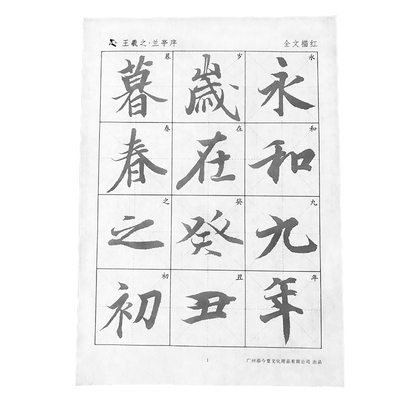 王羲之·兰亭序
全文描红
永和九年
永和九年
歲在癸丑
在癸丑
暮春之初
暮春之初
1
广州 文化用品有限公司 出品